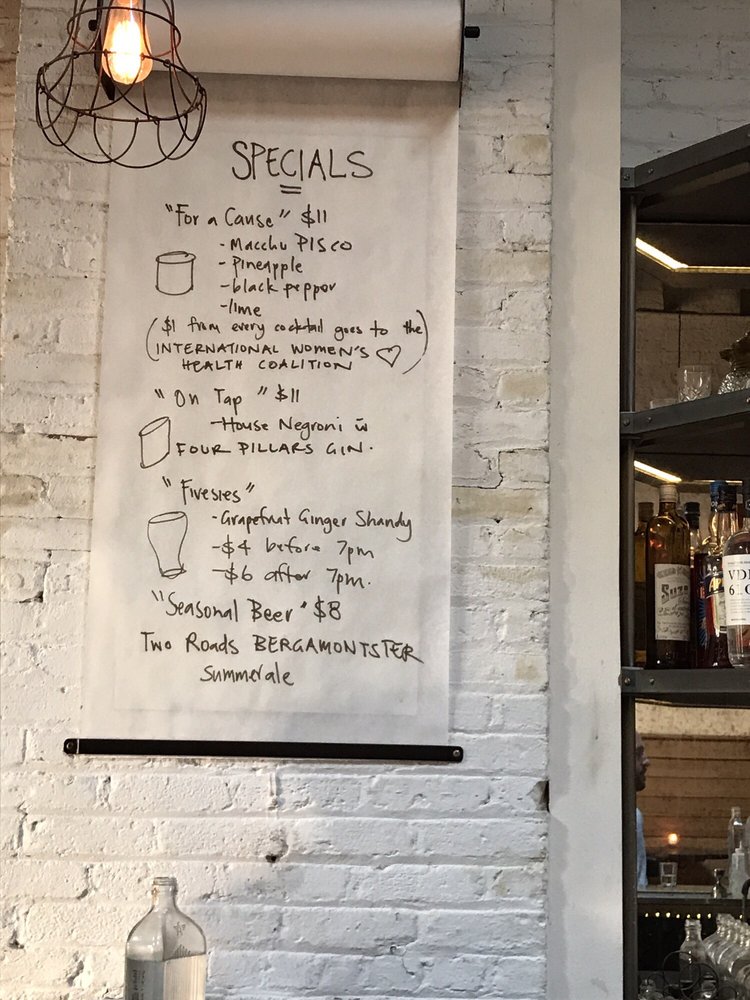 SPECIALS
"For a Cause" $11
- Macchu PISCO
- Pineapple
- black pepper
- lime
($1 from every cocktail goes to the
INTERNATIONAL WOMEN'S
HEALTH COALITION
"On Tap" $11
- House Negroni w̄
FOUR PILLARS GIN.
"Fivesies"
- Grapefruit Ginger Shandy
- $4 before 7pm
- $6 after 7pm.
"Seasonal Beer" $8
Two Roads BERGAMONTSTER
Summerale
Suze
VDK